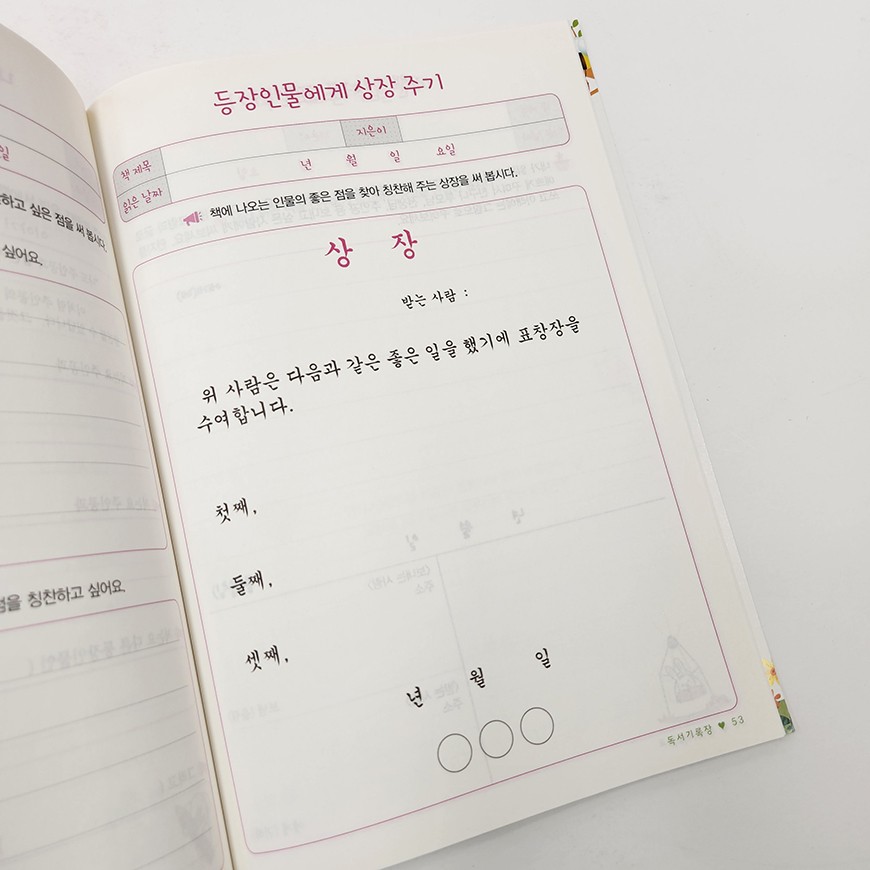 하고 싶은 점을 써 봅시다.
싶어요.
점을 칭찬하고 싶어요.
등장인물에게 상장 주기
책 제목 지은이
읽은 날짜 년 월 일 요일
책에 나오는 인물의 좋은 점을 찾아 칭찬해 주는 상장을 써 봅시다.
상 장
받는 사람 :
위 사람은 다음과 같은 좋은 일을 했기에 표창장을
수여합니다.
첫째,
둘째,
셋째,
년 월 일
독서기록장 ♥ 53